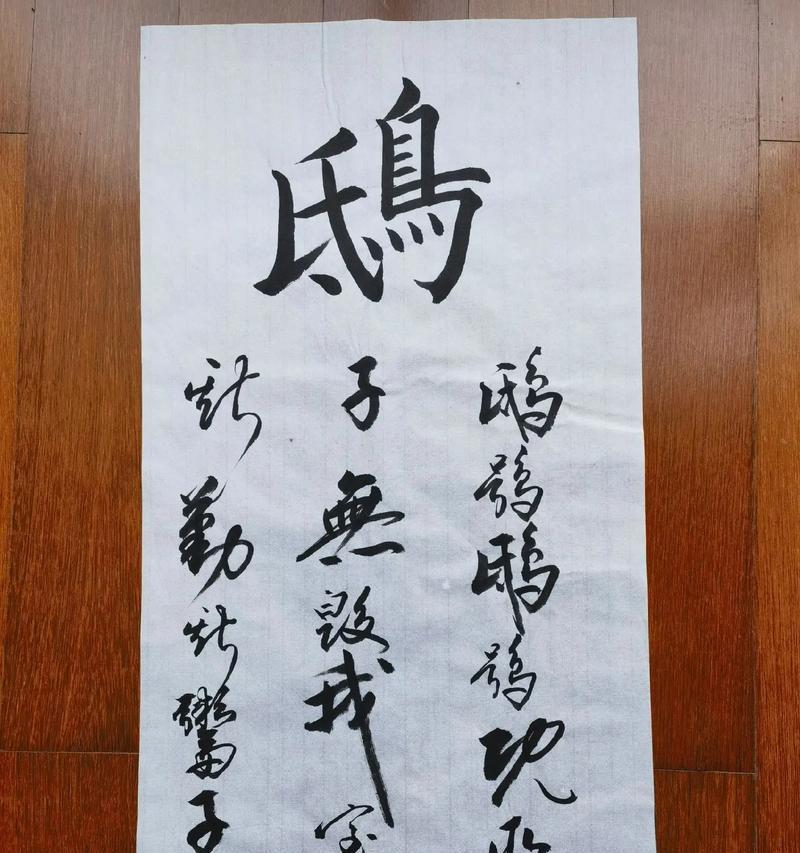 鴟
鴟鴞鴟鴞既取
子無毀我室
斯勤斯鬻子